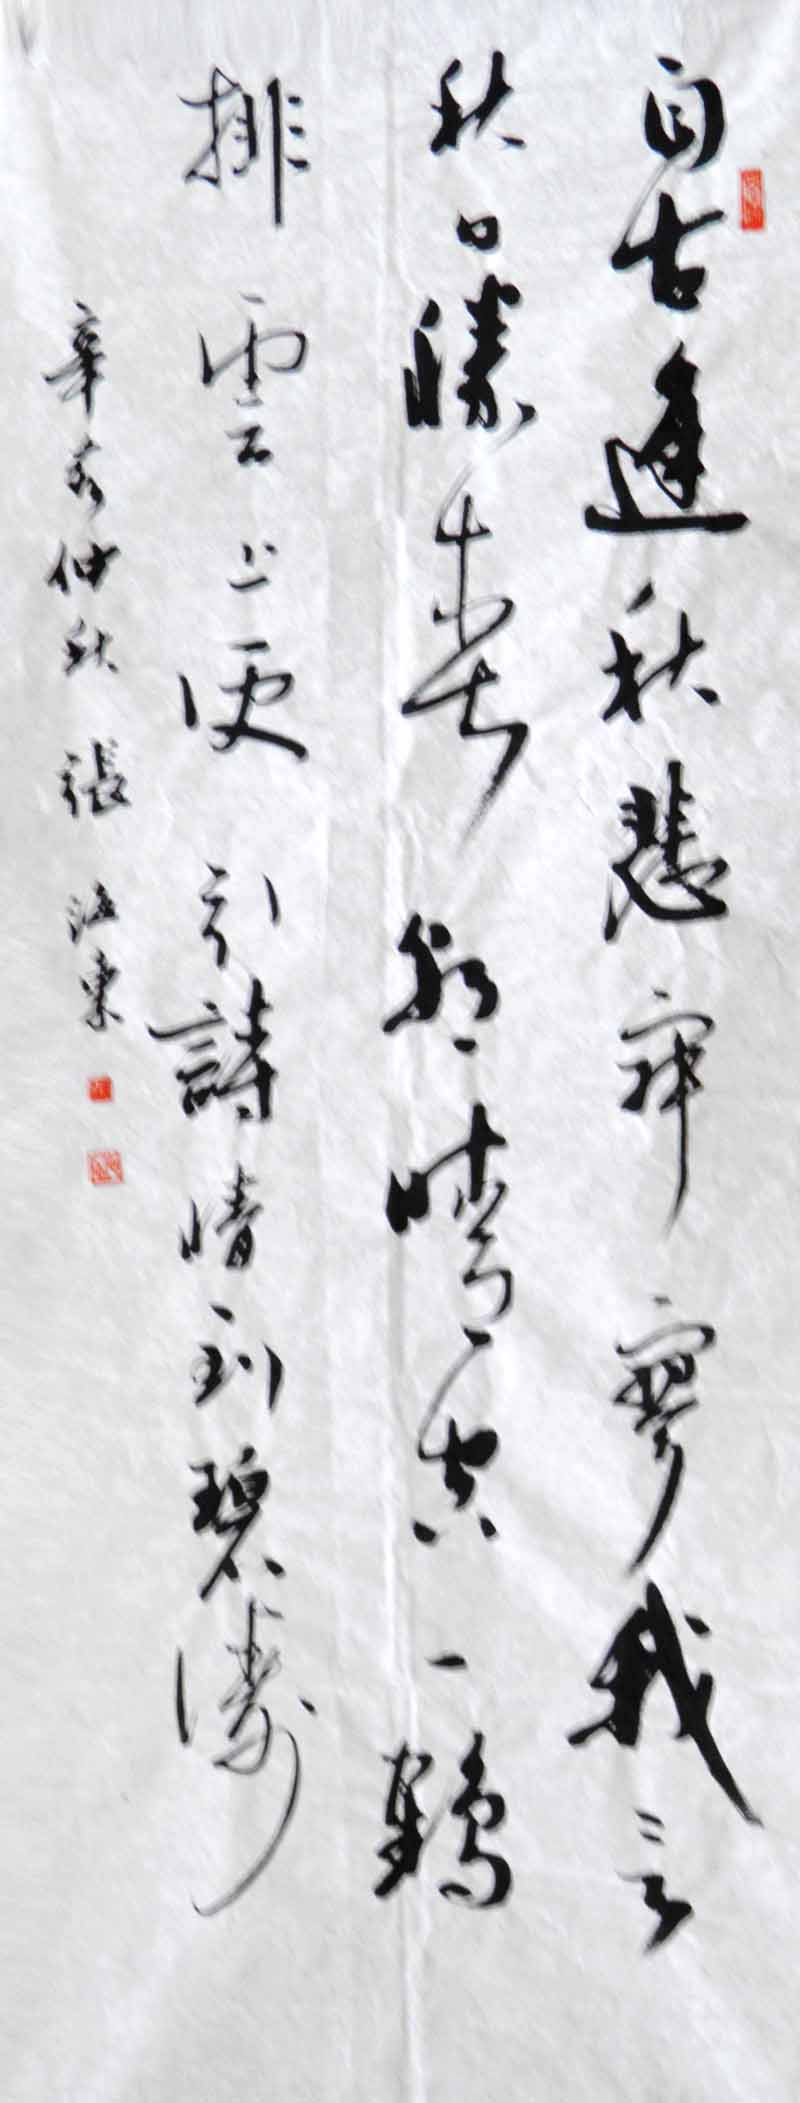 自古逢秋悲寂寥我言
秋日勝春朝晴空一鶴
排雲上便引詩情到碧濤
辛卯仲秋 張海東